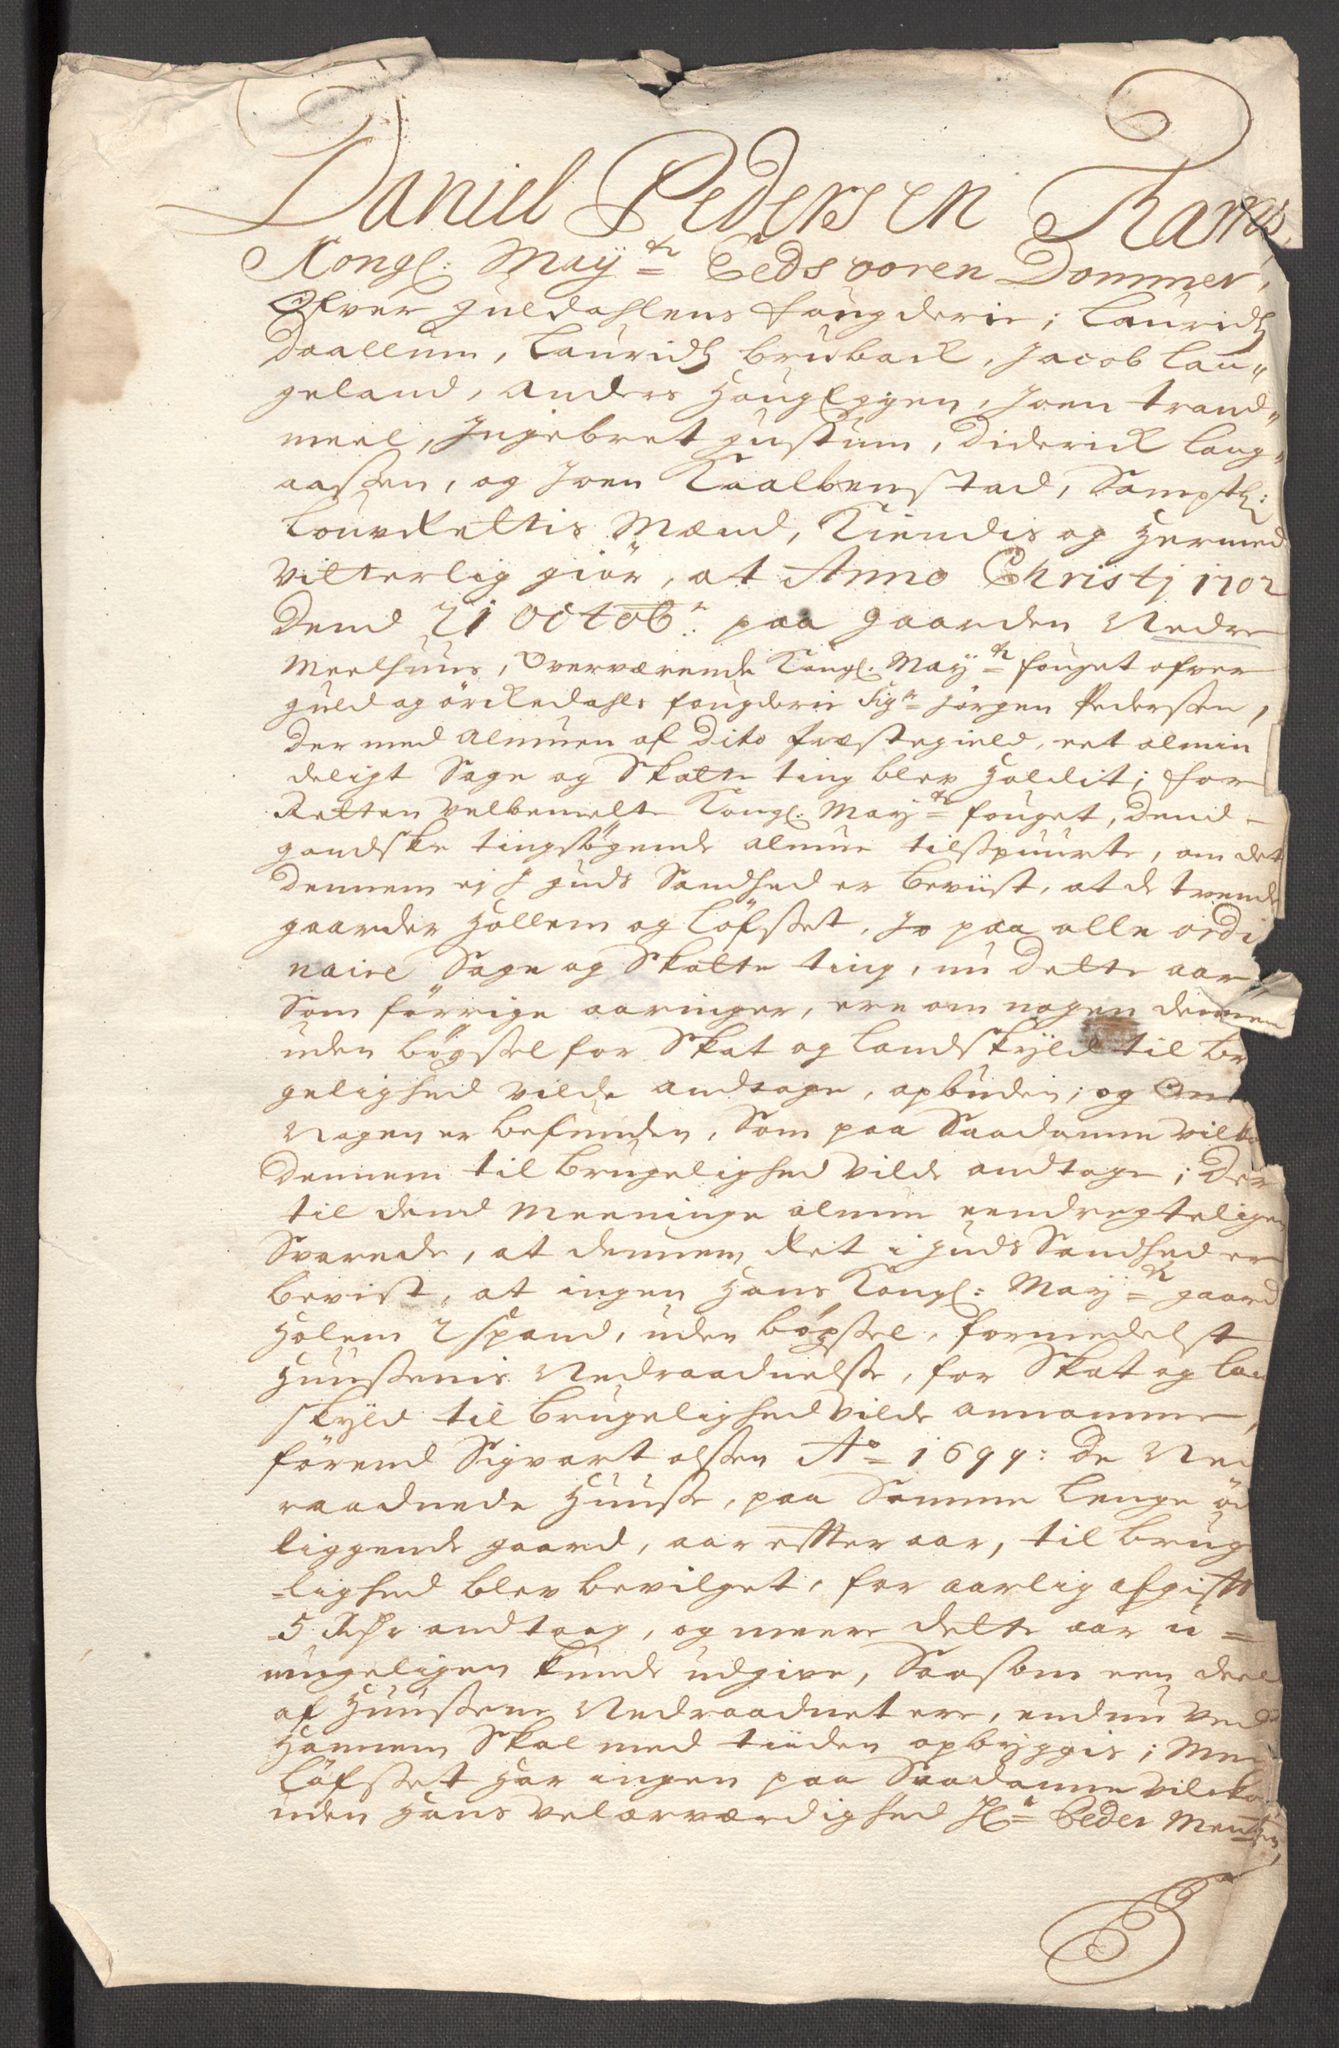 Daniel Pedersen Rams,
Kongl: May:tz Eedsvoren Dommer,
Ofver Guldahlens fougderie; Lauridtz
Daallum, Lauridtz Bruback, Jacob Lan"
geland, Anders Hougleggen, Joen trand"
meel, Ingebret Gustum, Diderick Lang"
aassen, og Joen Kaalbenstad, Samptl:
Lourettis Mænd, Kiendis og hermed
vitterlig giør, at Anno Christj 1702
Dend 21 Octob:r paa gaarden Nedre
Meelhuus, Overværende Kongl. May:tz fouget ofver
Guld og Örckedahls fougderie Sig:r Jörgen Pedersen,
der med Almuen af dito Præstegield, eet almin
deligt Sage og Skatte ting blev holdit; for
Retten velbemelte Kongl. May:tz fouget, dend
gandske tingsøgende almue tilspuurte, om det
dennem ej J Guds Sandhed er bevist, at de trende
gaarder Hollem og Löfsset, Jo paa alle ordi
naire Sage og Skatte ting, nu dette aar
Som förrige aaringer, ere om nogen dennem
uden bøgsel for Skat og Landskyld til br
gelighed vilde andtage, opbuden; og Om
Nogen er befunden, Som paa Saadanne vilk
dennem til brugelighed vilde andtage; Der
til dend Meeninge almue eendregteligen
Svarede, at dennem det i Guds Sandhed er
bevist, at ingen Hans Kongl: May:tz gaard
Holem 2 Spand, uden bøgssel, formedelst
Huussenis Nedraadnelse, for Skat og Lan
skyld til brugelighed vilde annamme,
förend Sigvart olssen A:o 1699: de Ned
raadnede Huusse, paa Samme lenge öd
liggende gaard, aar efter aar, til brug
-lighed blev bevilget, for aarlig afgifft
5 Rdr andtoeg, og meere dette aar u=
mueligen kunde udgive, Saasom een deel
af Huussene Nedraadnet ere, endnu ved
Hannem Skal med tiiden opbyggis; Men
Löfsset har ingen paa Saadanne vilckor
uden Hans Velærværdighed Hr: Peder Mentzen,